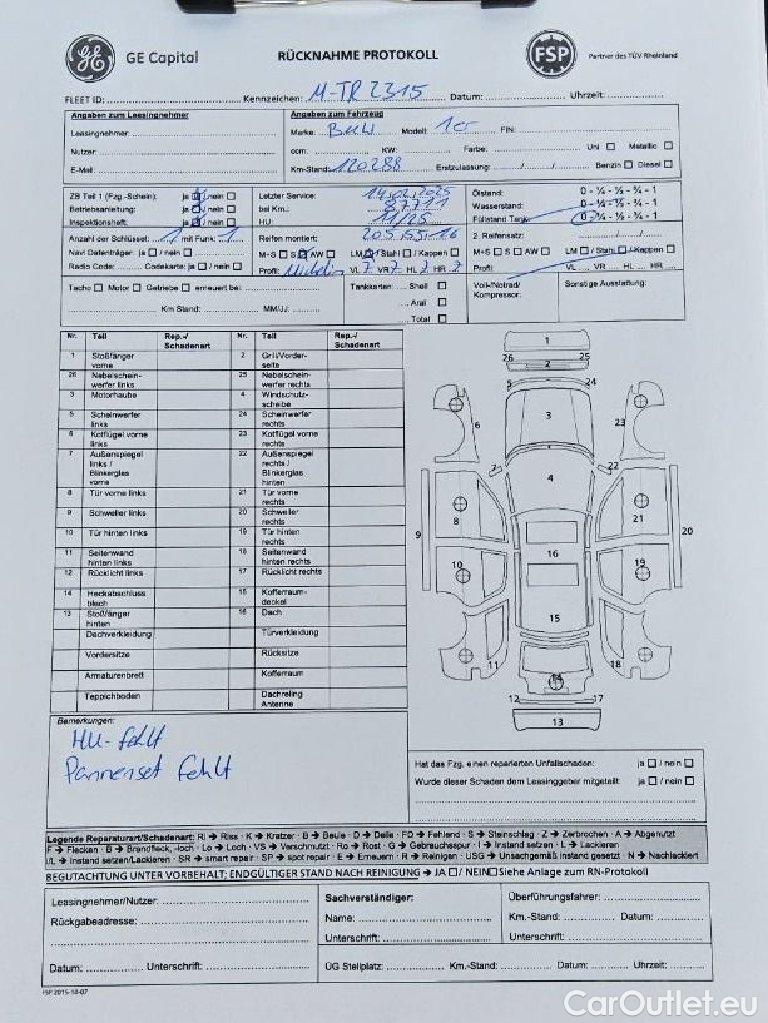 GE Capital
RÜCKNAHME PROTOKOLL
FSP
Partner des TÜV Rheinland
FLEET ID: Kennzeichen: M-TR 2315 Datum: Uhrzeit:
Angaben zum Leasingnehmer
Leasingnehmer:
Nutzer:
E-Mail:
Angaben zum Fahrzeug
Marke: BMW Modell: 1er FIN:
ccm: KW: Farbe: Uni ☐ Metallic ☐
Km-Stand: 120288 Erstzulassung: / / Benzin ☐ Diesel ☐
ZB Teil 1 (Fzg.-Schein): ja ☒ / nein ☐
Betriebsanleitung: ja ☒ / nein ☐
Inspektionsheft: ja ☒ / nein ☐
Letzter Service: 14.02.2025
bei Km.: 87711
HU: 11/25
Ölstand: 0 - ¼ - ½ - ¾ - 1
Wasserstand: 0 - ¼ - ½ - ¾ - 1
Füllstand Tank: 0 - ¼ - ½ - ¾ - 1
Anzahl der Schlüssel: 1 mit Funk: 1
Navi Datenträger: ja ☐ / nein ☐
Radio Code: Codekarte: ja ☐ / nein ☐
Reifen montiert: 205.55.16
M+S ☐ S ☒ AW ☐ LM ☒ / Stahl ☐ / Kappen ☐
Profil: Michelin VL 7 VR 7 HL 7 HR 7
2. Reifensatz: / /
M+S ☐ S ☐ AW ☐ LM ☐ / Stahl ☐ / Kappen ☐
Profil: VL VR HL HR
Tacho ☐ Motor ☐ Getriebe ☐ erneuert bei:
Km Stand: MM/JJ:
Tankkarten: Shell ☐
Aral ☐
Total ☐
Voll-/Notrad/
Kompressor:
Sonstige Ausstattung:
Nr. Teil Rep.-/ Schadenart Nr. Teil Rep.-/ Schadenart
1 Stoßfänger vorne 2 Grill/Vorder-seite
26 Nebelschein-werfer links 25 Nebelschein-werfer rechts
3 Motorhaube 4 Windschutz-scheibe
5 Scheinwerfer links 24 Scheinwerfer rechts
6 Kotflügel vorne links 23 Kotflügel vorne rechts
7 Außenspiegel links / Blinkerglas vorne 22 Außenspiegel rechts / Blinkerglas hinten
8 Tür vorne links 21 Tür vorne rechts
9 Schweller links 20 Schweller rechts
10 Tür hinten links 19 Tür hinten rechts
11 Seitenwand hinten links 18 Seitenwand hinten rechts
12 Rücklicht links 17 Rücklicht rechts
14 Heckabschluss blech 15 Kofferraum-deckel
13 Stoßfänger hinten 16 Dach
Dachverkleidung Türverkleidung
Vordersitze Rücksitze
Armaturenbrett Kofferraum
Teppichboden Dachreling Antenne
1
26 2 25
5 24
6 3 23
7 22
4
8 21
9 16 20
10 19
15
11 14 18
12 17
13
Bemerkungen:
HU- fehlt
Pannenset fehlt
Hat das Fzg. einen reparierten Unfallschaden: ja ☐ / nein ☐
Wurde dieser Schaden dem Leasinggeber mitgeteilt ja ☐ / nein ☐
Legende Reparaturart/Schadenart: RI → Riss · K → Kratzer · B → Beule · D → Delle · FD → Fehlend · S → Steinschlag · Z → Zerbrochen · A → Abgenutzt
F → Flecken · B → Brandfleck, -loch · Lo → Loch · VS → Verschmutzt · Ro → Rost · G → Gebrauchsspur · I → Instand setzen · L → Lackieren
I/L → Instand setzen/Lackieren · SR → smart repair · SP → spot repair · E → Erneuern · R → Reinigen · USG → Unsachgemäß instand gesetzt · N → Nachlackiert
BEGUTACHTUNG UNTER VORBEHALT; ENDGÜLTIGER STAND NACH REINIGUNG → JA ☐ / NEIN ☐ Siehe Anlage zum RN-Protokoll
Leasingnehmer/Nutzer:
Rückgabeadresse:
Datum: Unterschrift:
Sachverständiger:
Name:
Unterschrift:
Überführungsfahrer:
Km.-Stand: Datum:
Unterschrift:
ÜG Stellplatz: Km.-Stand: Datum: Uhrzeit:
FSP 2015-10-07
CarOutlet.eu